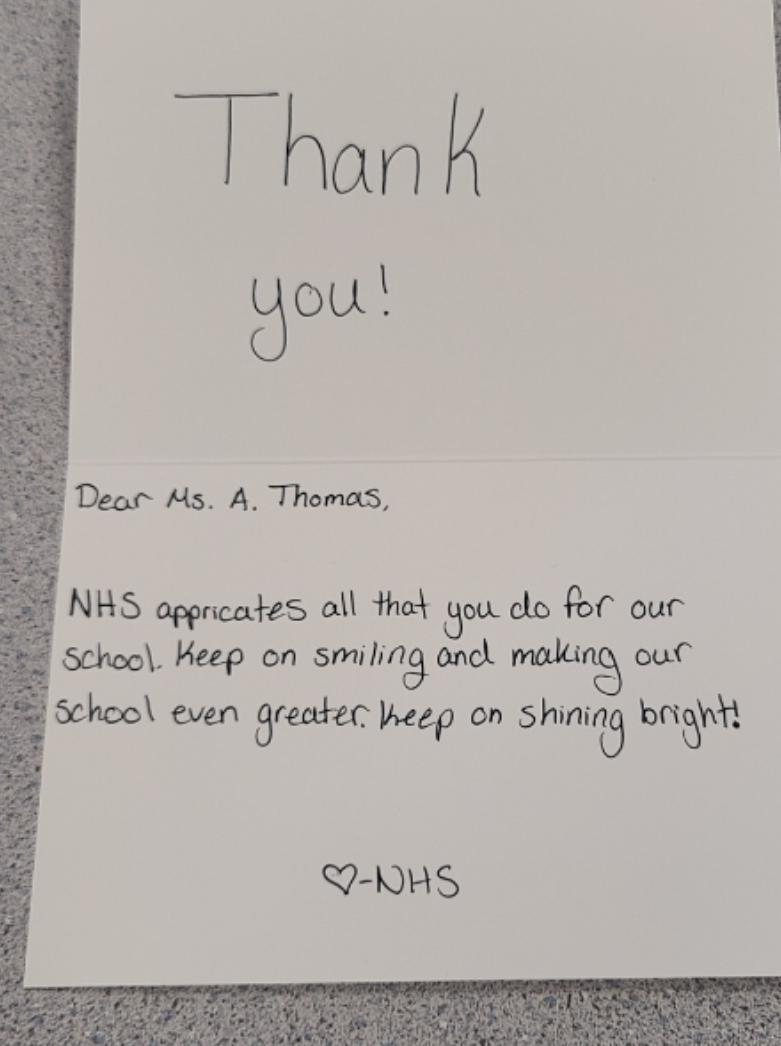 Thank
you!
Dear Ms. A. Thomas,
NHS appricates all that you do for our
school. Keep on smiling and making our
school even greater. Keep on shining bright!
♡-NHS